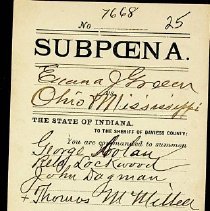 7668
No 25
SUBPŒNA.
Emma J Green
Ohio & Mississippi
THE STATE OF INDIANA.
TO THE SHERIFF OF DAVIESS COUNTY:
You are commanded to summon
George Nolan
Lockwood
John Dagman
+ Thomas McMillen